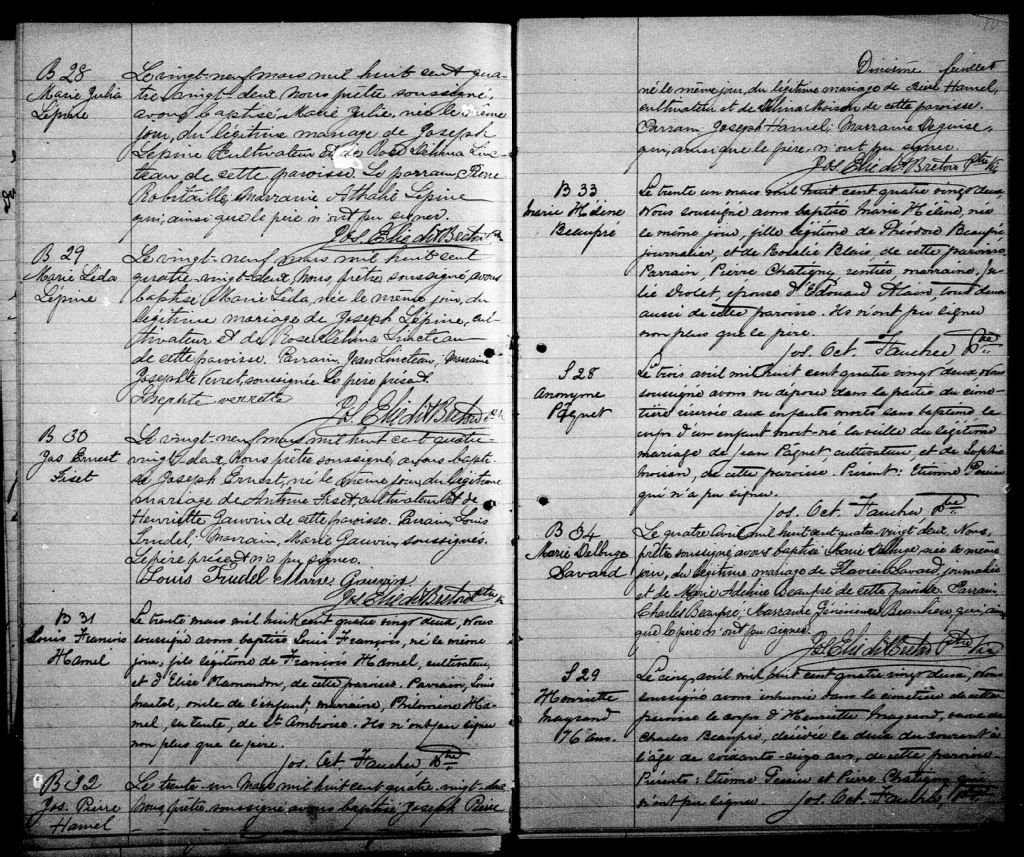 B 28
Marie Julia
Lépine
Le vingt-neuf mars mil huit cent qua-
tre vingt-deux Nous prêtre soussigné,
avons baptisé Marie Julie, née le même
jour, du légitime mariage de Joseph
Lépine Cultivateur et de Rose Délima Linc-
teau de cette paroisse. Le parrain, Pierre
Robitaille, marraine Athalie Lépine
qui, ainsi que le père n'ont pu signer.
Jos. Elie dit Breton Ptre
B 29
Marie Léda
Lépine
Le vingt-neuf mars mil huit cent
quatre-vingt-deux, Nous, prêtre, soussigné, avons
baptisé Marie Léda, née le même jour, du
légitime mariage de Joseph Lépine, cul-
tivateur et de Rose Délima Lincteau
de cette paroisse. Parrain, Jean Lincteau, Marraine
Josephte Verret, soussignée. Le père présent.
Josephte verrette
Jos. Elie dit Breton Ptre
B 30
Jos Ernest
Fiset
Le vingt-neuf mars mil huit cent quatre-
vingt-deux, Nous prêtre soussigné, avons bapti-
sé Joseph Ernest, né le même jour, du légitime
mariage de Antoine Fiset, cultivateur et de
Henriette Gauvin de cette paroisse. Parrain, Louis
Trudel, Marraine, Marie Gauvin, soussignés.
Le père présent n'a pu signer.
Louis Trudel Marie Gauvin
Jos. Elie dit Breton Ptre
B 31
Louis François
Hamel
Le trente mars mil huit cent quatre vingt deux, Nous
soussigné avons baptisé Louis François, né le même
jour, fils légitime de François Hamel, cultivateur,
et d'Elise Hamondon, de cette paroisse. Parrain, Louis
oncle de l'enfant, marraine, Philomène Ha-
mel, sa tante, de St Ambroise. Ils n'ont pu signer
non plus que le père.
Jos. Oct. Faucher Ptre
B 32
Jos. Pierre
Hamel
Le trente-un Mars mil huit cent quatre-vingt-deux
Nous, prêtre soussigné avons baptisé Joseph Pierre
Dixième feuillet
né le même jour, du légitime mariage de Hamel,
cultivateur et de Délina Moisan de cette paroisse.
Parrain, Joseph Hamel; Marraine
qui, ainsi que le père n'ont pu signer.
Jos. Elie dit Breton Ptre
B 33
Marie Hélène
Beaupré
Le trente un mars mil huit cent quatre vingt deux,
Nous soussigné avons baptisé Marie Hélène, née
le même jour, fille légitime de Théodore Beaupré
journalier, et de Rosalie Blais, de cette paroisse.
Parrain Pierre Chatigny rentier, marraine, Ju-
lie Drolet, épouse d'Edouard Alain, tous deux
aussi de cette paroisse. Ils n'ont pu signer
non plus que le père.
Jos. Oct. Faucher Ptre
S 28
Anonyme
Paquet
Le trois avril mil huit cent quatre vingt deux, Nous
soussigné avons vu déposer dans la partie du cime-
tière réservée aux enfants morts sans baptême le
corps d'un enfant mort-né la veille du légitime
mariage de Jean Paquet cultivateur et de Sophie
de cette paroisse. Présent: Etienne
qui n'a pu signer.
Jos. Oct. Faucher Ptre
B 34
Marie
Savard
Le quatre Avril mil huit cent quatre-vingt deux, Nous,
prêtre soussigné, avons baptisé Marie née le même
jour, du légitime mariage de Flavien Savard journalier
et de Marie Adeline Beaupré de cette paroisse. Parrain
Charles Beaupré; Marraine Beaulieu, qui, ainsi
que le père n'ont pu signer.
Jos. Elie dit Breton Ptre
S 29
Henriette
Magrand
76 ans.
Le cinq avril mil huit cent quatre vingt deux, Nous
soussigné avons inhumé dans le cimetière de cette
paroisse le corps d'Henriette Magrand, veuve de
Charles Beaupré, décédée le deux du courant à
l'âge de soixante-seize ans, de cette paroisse
Présents: Etienne et Pierre Chatigny qui
n'ont pu signer. Jos. Oct. Faucher Ptre